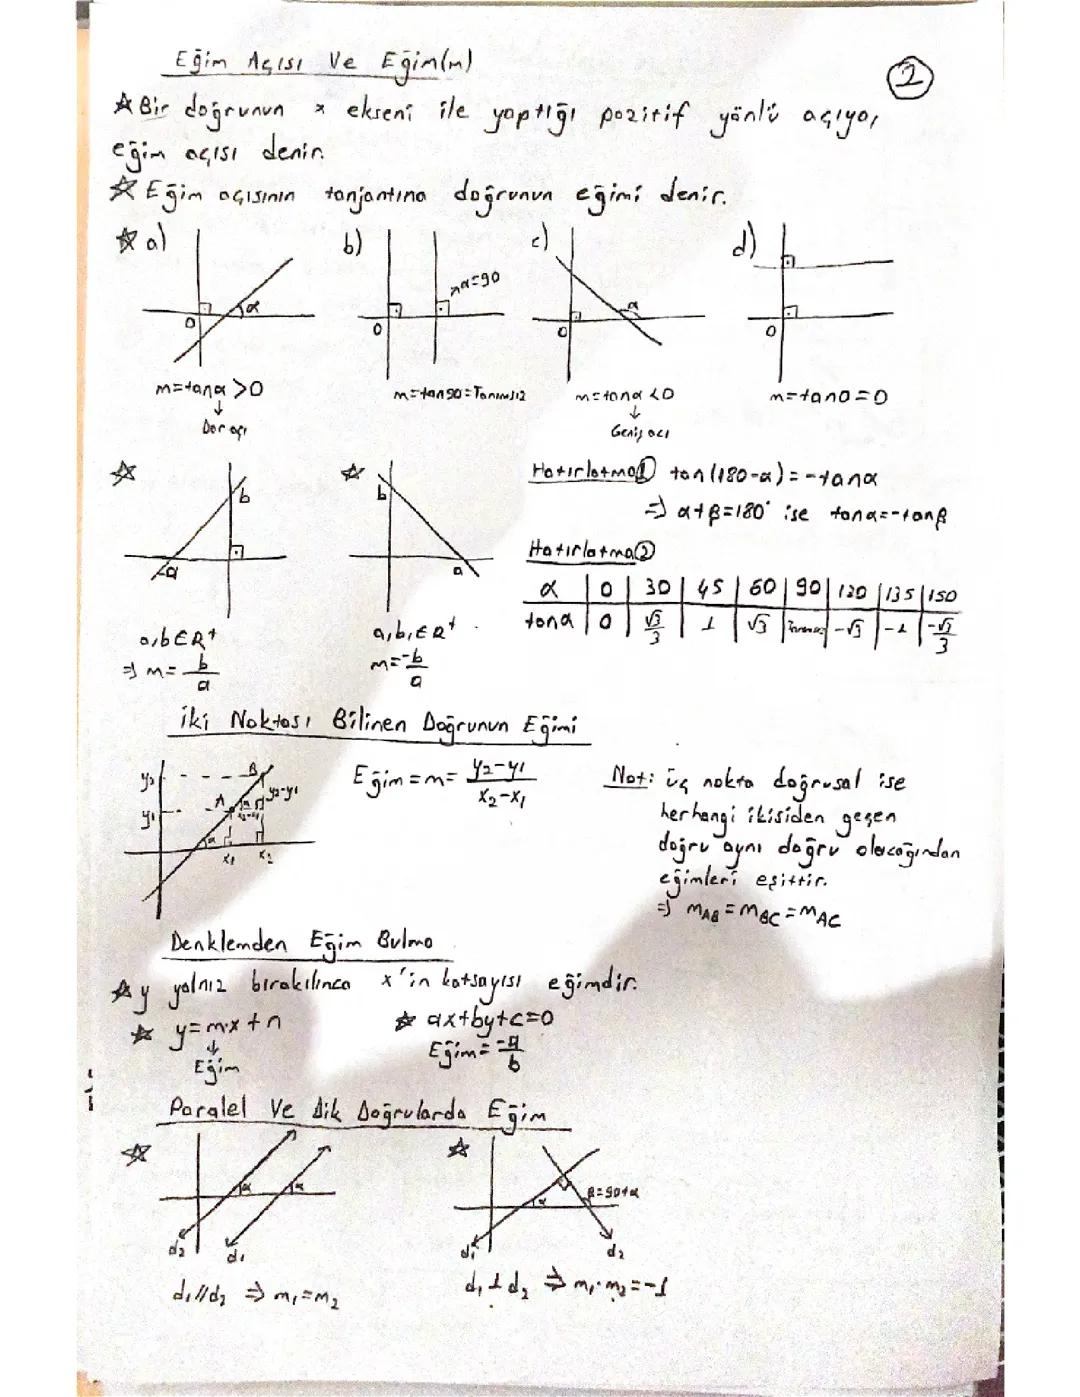 Eğim Açısı Ve Eğim(m)
2
☆ Bir doğrunun x ekseni ile yaptığı pozitif yönlü açıya,
eğim açısı denir.
☆ Eğim açısının tanjantına doğrunun eğimi denir.
☆ a) b) c) d)
α=90
α α
0 0 0 0
m=tanα >0 m=tan90=Tanımsız m=tanα <0 m=tan0=0
↓ ↓
Dar açı Geniş açı
☆ ☆ Hatırlatma① tan(180-α)=-tanα
b b ⇒ α+β=180° ise tanα=-tanβ
Hatırlatma②
-a a
α 0 30 45 60 90 120 135 150
tanα 0 √3/3 1 √3 Tanımsız -√3 -1 -√3/3
a,b∈R+ a,b,∈R+
⇒ m=b/a m=-b/a
İki Noktası Bilinen Doğrunun Eğimi
y2 B
y1 A α y2-y1
x2-x1
α x1 x2
Eğim=m= y2-y1/x2-x1
Not: üç nokta doğrusal ise
herhangi ikisiden geçen
doğru aynı doğru olacağından
eğimleri eşittir.
⇒ mAB=mBC=mAC
Denklemden Eğim Bulma
☆ y yalnız bırakılınca x'in katsayısı eğimdir.
☆ y=m·x+n ☆ ax+by+c=0
↓
Eğim Eğim=-a/b
Paralel Ve Dik Doğrularda Eğim
☆ ☆
α α α β=90+α
d2 d1 d1 d2
d1//d2 ⇒ m1=m2 d1⊥d2 ⇒ m1·m2=-1